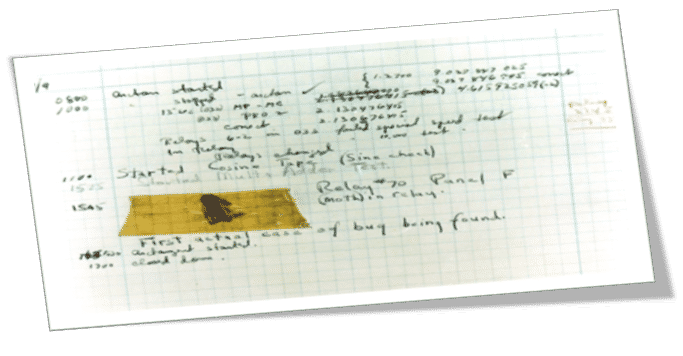 1/9
0800 antan started
1000 " stopped - antan ✓ { 1.2700 9.037 847 025
13" UC (032) MP - MC 9.037 846 995 correct
4.615925059(-2)
(033) PRO 2 2.130476415
correct 2.130676415
Relays 6-2 in 033 failed special speed test
in relay " test.
Relays changed
1100 Started Cosine Tape (Sine check)
1525 Started Multi Adder Test.
1545 Relay #70 Panel F
(moth) in relay.
First actual case of bug being found.
antangent started.
1700 closed down.